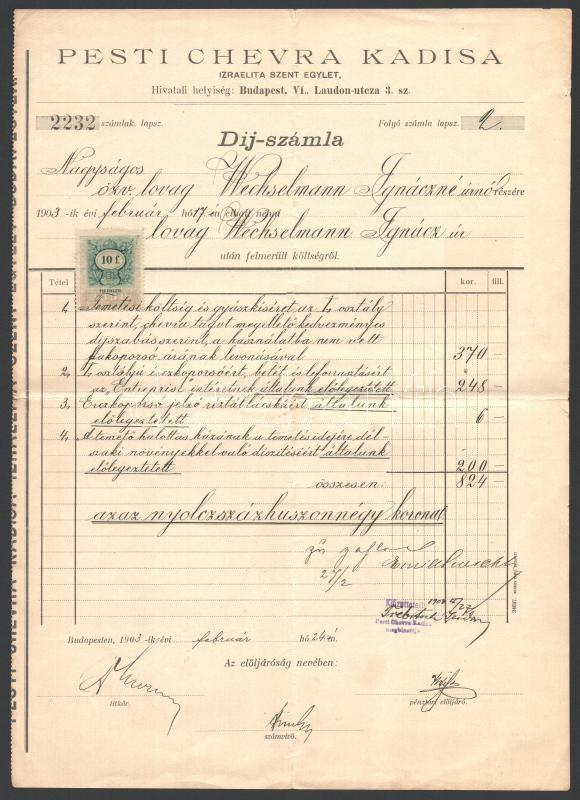 PESTI CHEVRA KADISA
IZRAELITA SZENT EGYLET,
Hivatali helyiség: Budapest, VI., Laudon-utcza 3. sz.
2232 számlak. lapsz. Folyó számla lapsz. 2.
Dij-számla
Nagyságos
özv. lovag Wechselmann Ignáczné úrnő részére
1903-ik évi február hó 17-én elhalt néhai
lovag Wechselmann Ignácz úr
után felmerült költségről.
10 f.
Tétel kor. fill.
1, Temetési költség és gyászkiséret az I. osztály
szerint, chevra tagot megillető kedvezményes
dijszabás szerint, a használatba nem vett
fakoporsó árának levonásával 370 –
2, I. osztályú érczkoporsóért, belét és leforrasztásért
az "Entreprise" intézetnek általunk előlegeztetett 248 –
3, Érczkoporsó jelző réztáblácskáért általunk
előlegeztetett 6 –
4, A temető halottas házának a temetés idejére dél-
szaki növényekkel való diszitéséért általunk
előlegeztetett 200 –
összesen: 824 –
azaz nyolczszázhuszonnégy korona
27/2
Kifizettetett
Pesti Chevra Kadisa
Budapesten, 1903-ik évi február hó 24-én.
Az előljáróság nevében:
titkár.
számvivő.
pénztári előljáró.